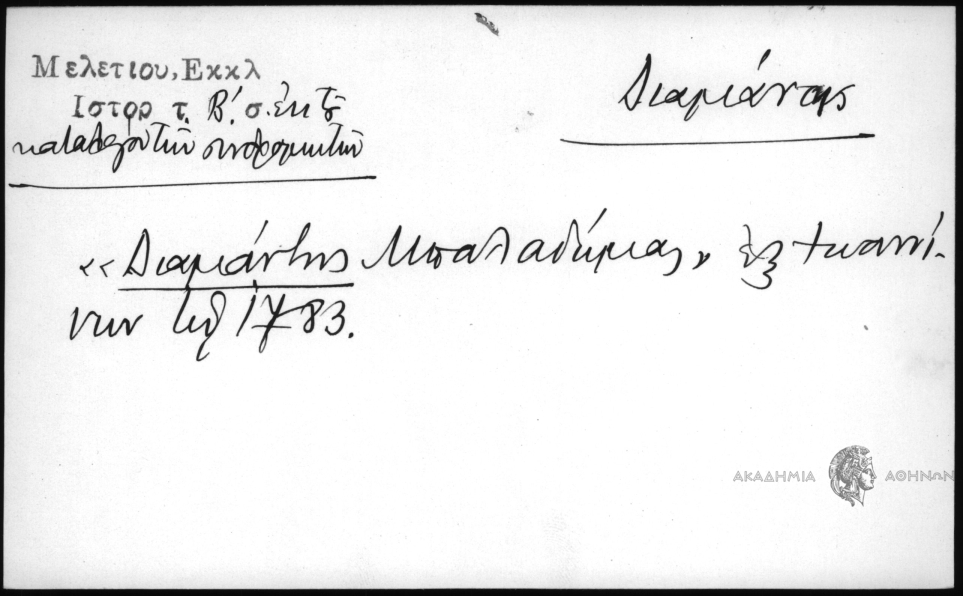 Μελετίου, Εκκλ
Ιστορ τ. Β΄. σ. ἐκ τ͂
καταλόγου τῶν συνδρομητῶν
Διαμάντης
«Διαμάντης Μπαλαδήμας» ἐξ Ἰωαννί-
νων τῷ 1783.
ΑΚΑΔΗΜΙΑ ΑΘΗΝΩΝ